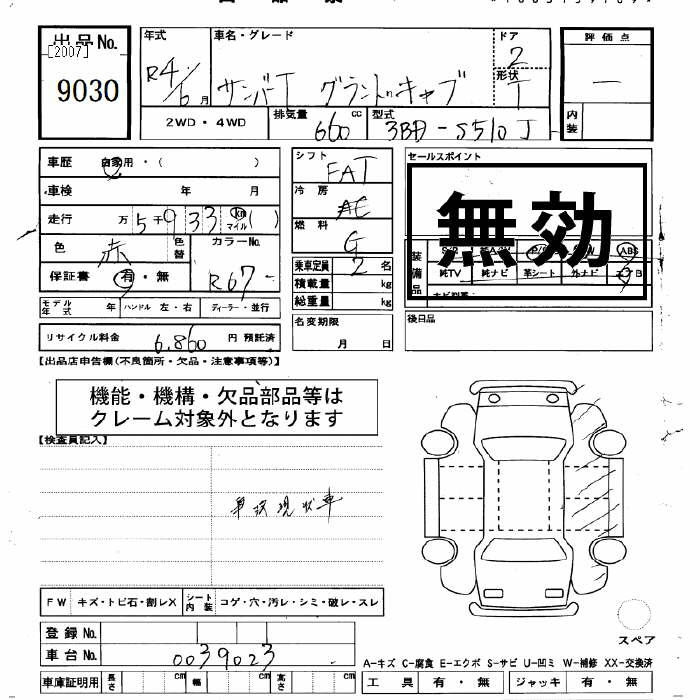 出品No.
[2007]
9030
年式
R4/6月
車名・グレード
サンバーT グランドキャブ
ドア
2
形状
T
評価点
―
内装
2WD・4WD
排気量
660 cc
型式
3BD-S510J
車歴 自家用・( )
車検 年 月
走行 万 5千 9 3 3 km マイル ( )
色 赤 色替
カラーNo.
R67
保証書 有・無
モデル年式 年 ハンドル 左・右 ディーラー・並行
リサイクル料金 6,860 円 預託済
シフト
FAT
冷房
AC
燃料
G
乗車定員 2 名
積載量 kg
総重量 kg
名変期限
月 日
セールスポイント
無効
装備品
純TV 純ナビ 革シート 外ナビ
ABS
後日品
【出品店申告欄(不良箇所・欠品・注意事項等)】
機能・機構・欠品部品等は
クレーム対象外となります
【検査員記入】
事故現状車
FW キズ・トビ石・割レX シート内装 コゲ・穴・汚レ・シミ・破レ・スレ
登録No.
車台No. 0039023
車庫証明用 長さ cm 幅 cm 高さ cm
スペア
A-キズ C-腐食 E-エクボ S-サビ U-凹ミ W-補修 XX-交換済
工具 有・無 ジャッキ 有・無